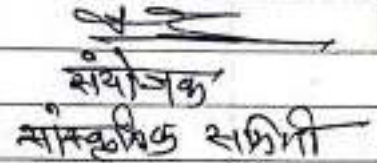 संयोजक
सांस्कृतिक समिती